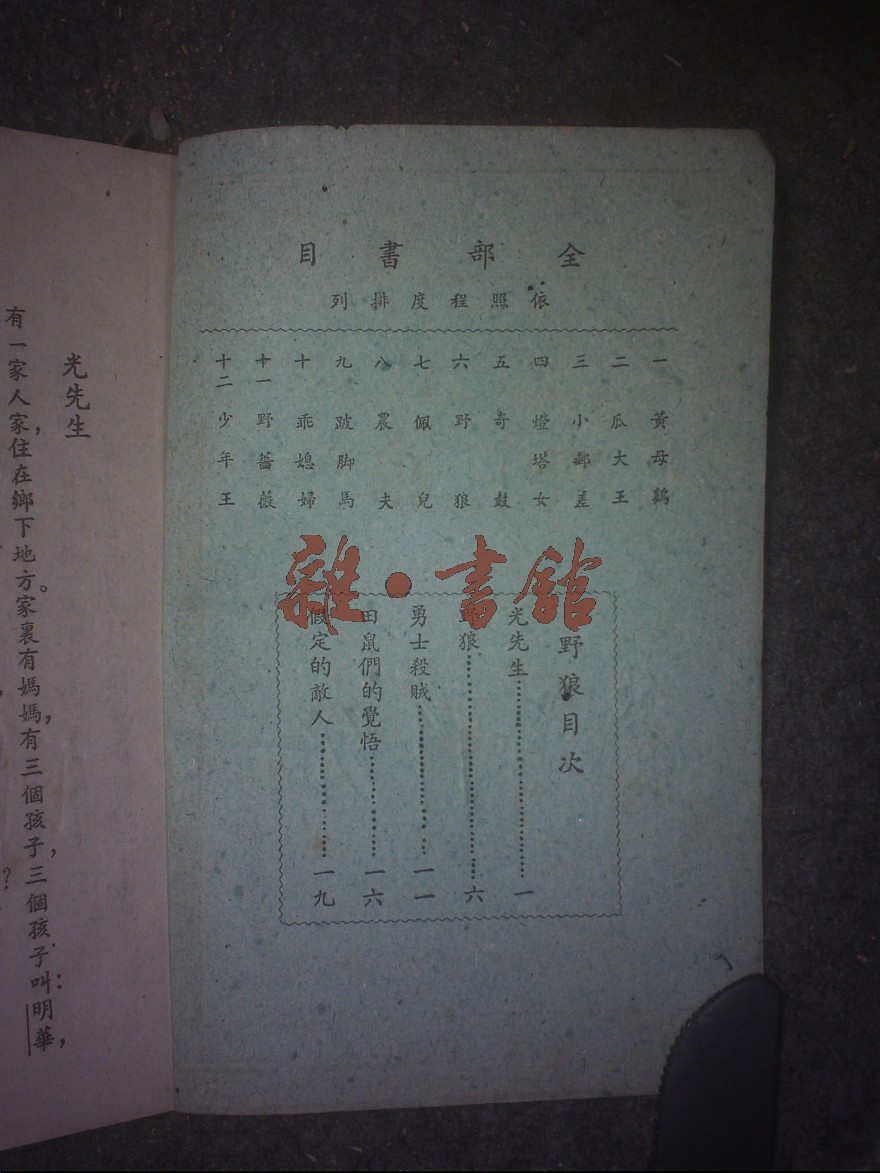 全部書目
依照程度排列
一 黃母鷄
二 瓜大王
三 小郵差
四 燈塔女
五 奇鼓
六 野狼
七 佩兒
八 農夫
九 跛脚馬
十 乖媳婦
十一 野薔薇
十二 少年王
雜·書館
野狼目次
光先生 一
狼 六
勇士殺賊 一一
田鼠們的覺悟 一六
假定的敵人 一九
光先生
有一家人家,住在鄉下地方。家裏有媽媽,有三個孩子,三個孩子叫:明華,
?